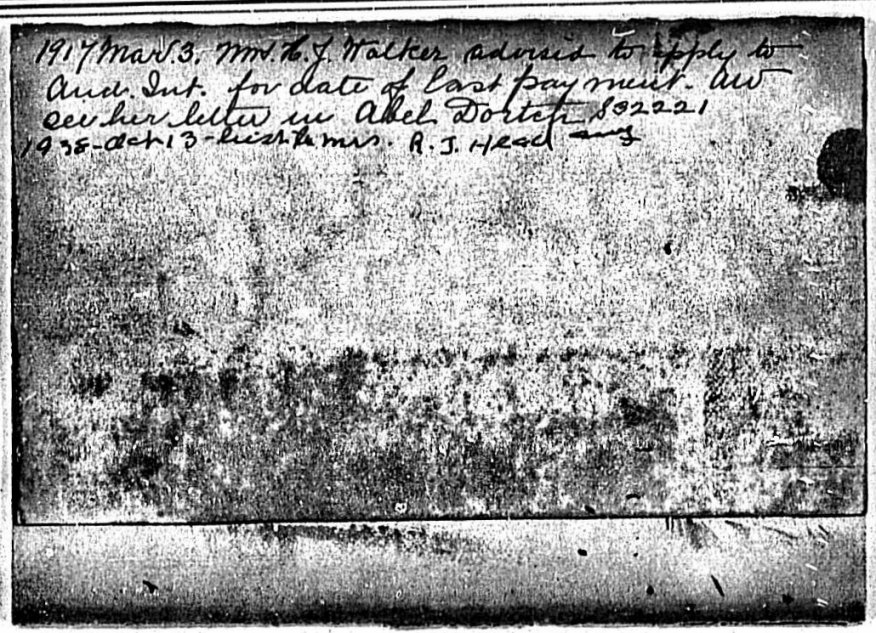 1917 Mar. 3. Mrs. H. J. Walker advised to apply to
Aud. Int. for date of last payment. AW
see her letter in Abel Dortch S32221
1938-Oct 13-hist to mrs. R. J. Head